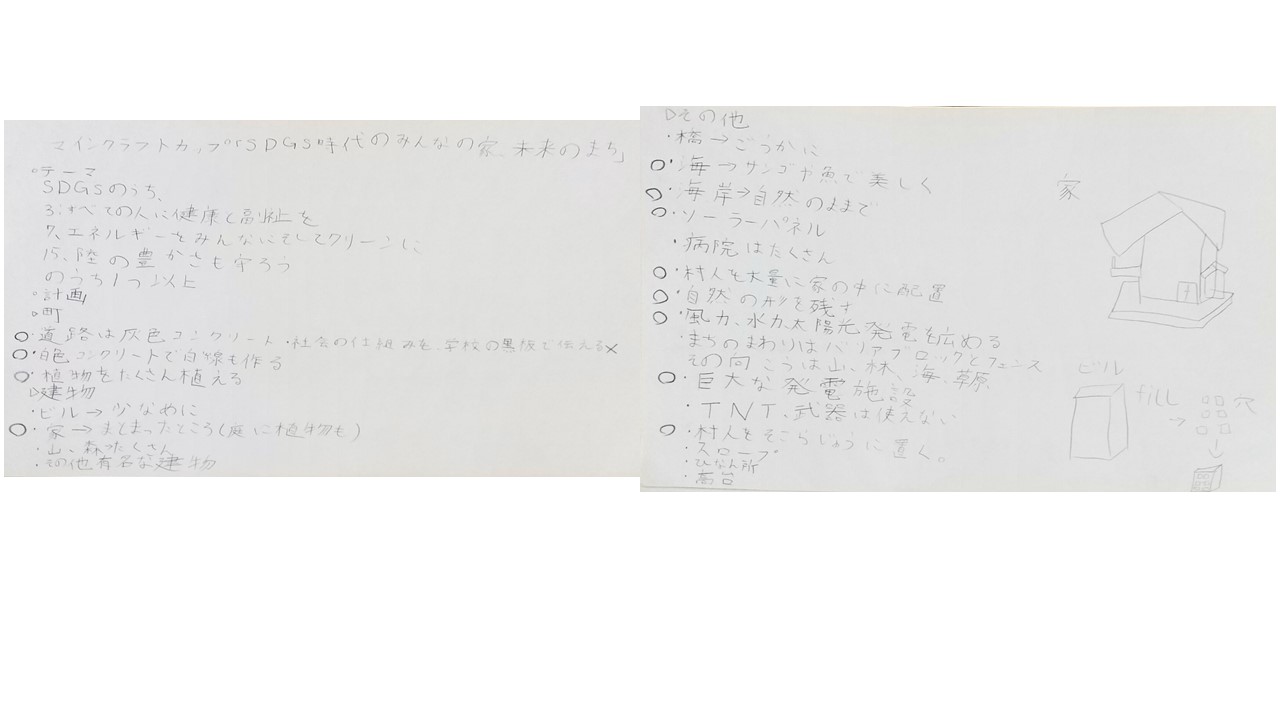 マインクラフトカップ「SDGS時代のみんなの家、未来のまち」
◦テーマ
SDGSのうち、
3:すべての人に健康と副祉を
7、エネルギーをみんなにそしてクリーンに
15、陸の豊かさも守ろう
のうち1つ以上
◦計画
▷町
○・道路は灰色コンクリート・社会の仕組みを、学校の黒板で伝える×
○・白色コンクリートで白線も作る
○・植物をたくさん植える
▷建物
・ビル→少なめに
○・家→まとまったところ(庭に植物も)
・山、森もたくさん
・その他有名な建物
▷その他
・橋→ごうかに
○・海→サンゴや魚で美しく
○・海岸→自然のままで
○・ソーラーパネル
・病院はたくさん
○・村人を大量に家の中に配置
○・自然の形を残す
○・風力、水力、太陽光発電を広める
・まちのまわりはバリアブロックとフェンス
その向こうは山、林、海、草原
○・巨大な発電施設
・TNT、武器は使えない
○・村人をそこらじゅうに置く。
・スロープ
・ひなん所
・高台
家
ビル
fill
→
穴
↓